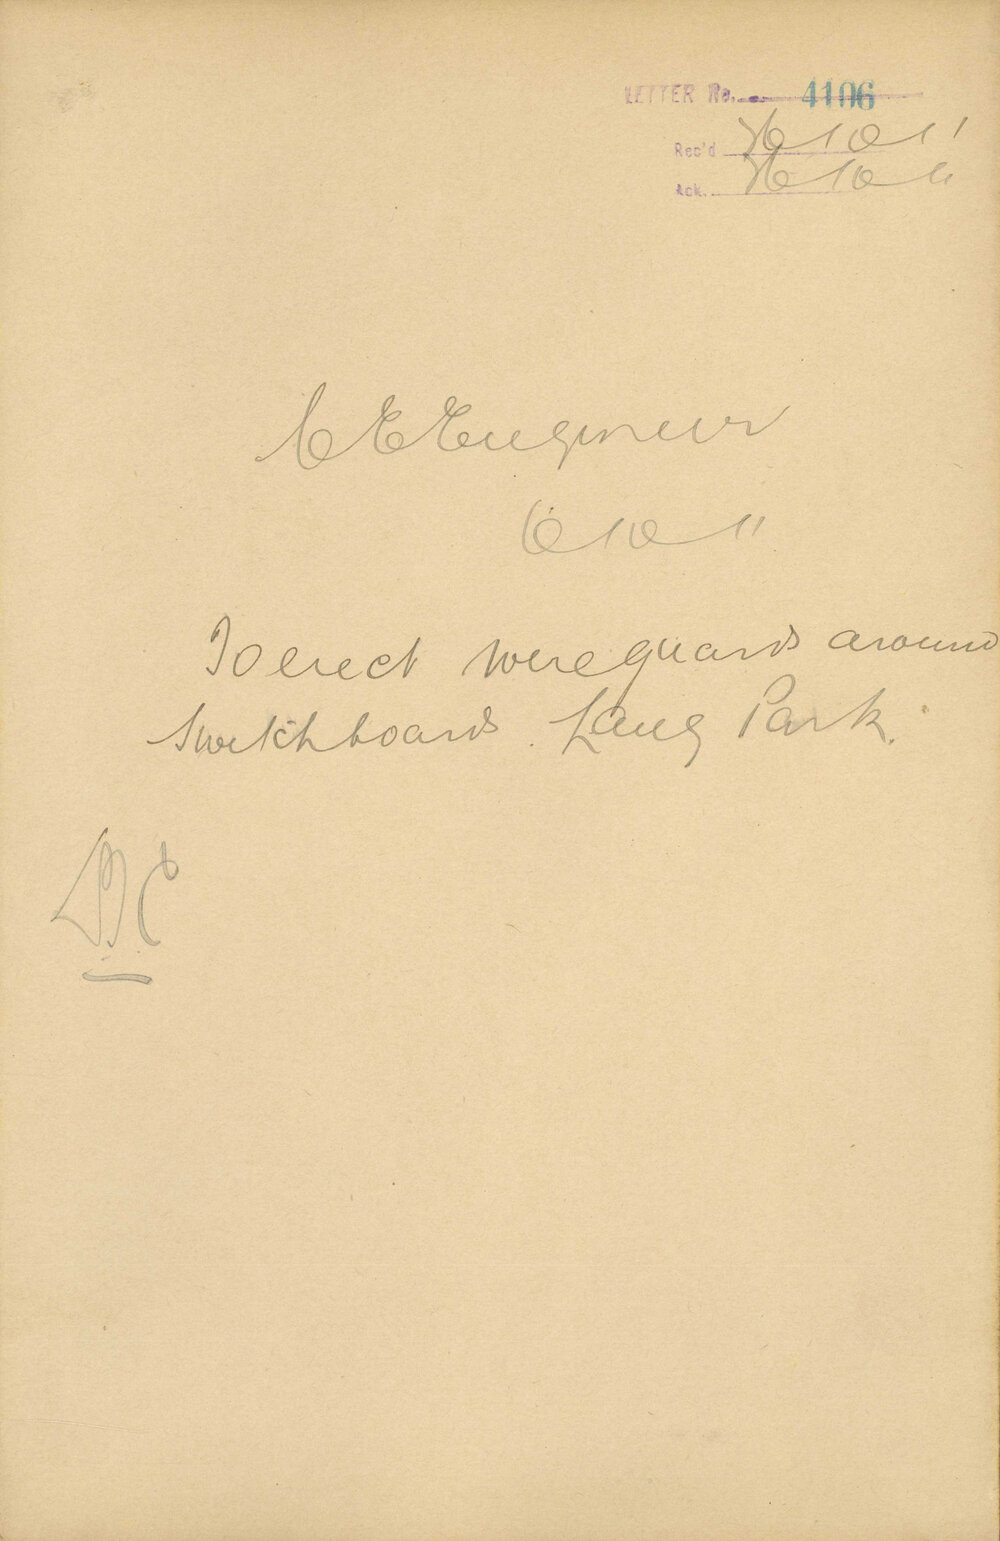 LETTER No. 4106
Rec'd 26 10 11
Ack. 26 10 11
C E Engineer
6 10 11
To erect wire guards around
switchboards. Lang Park.